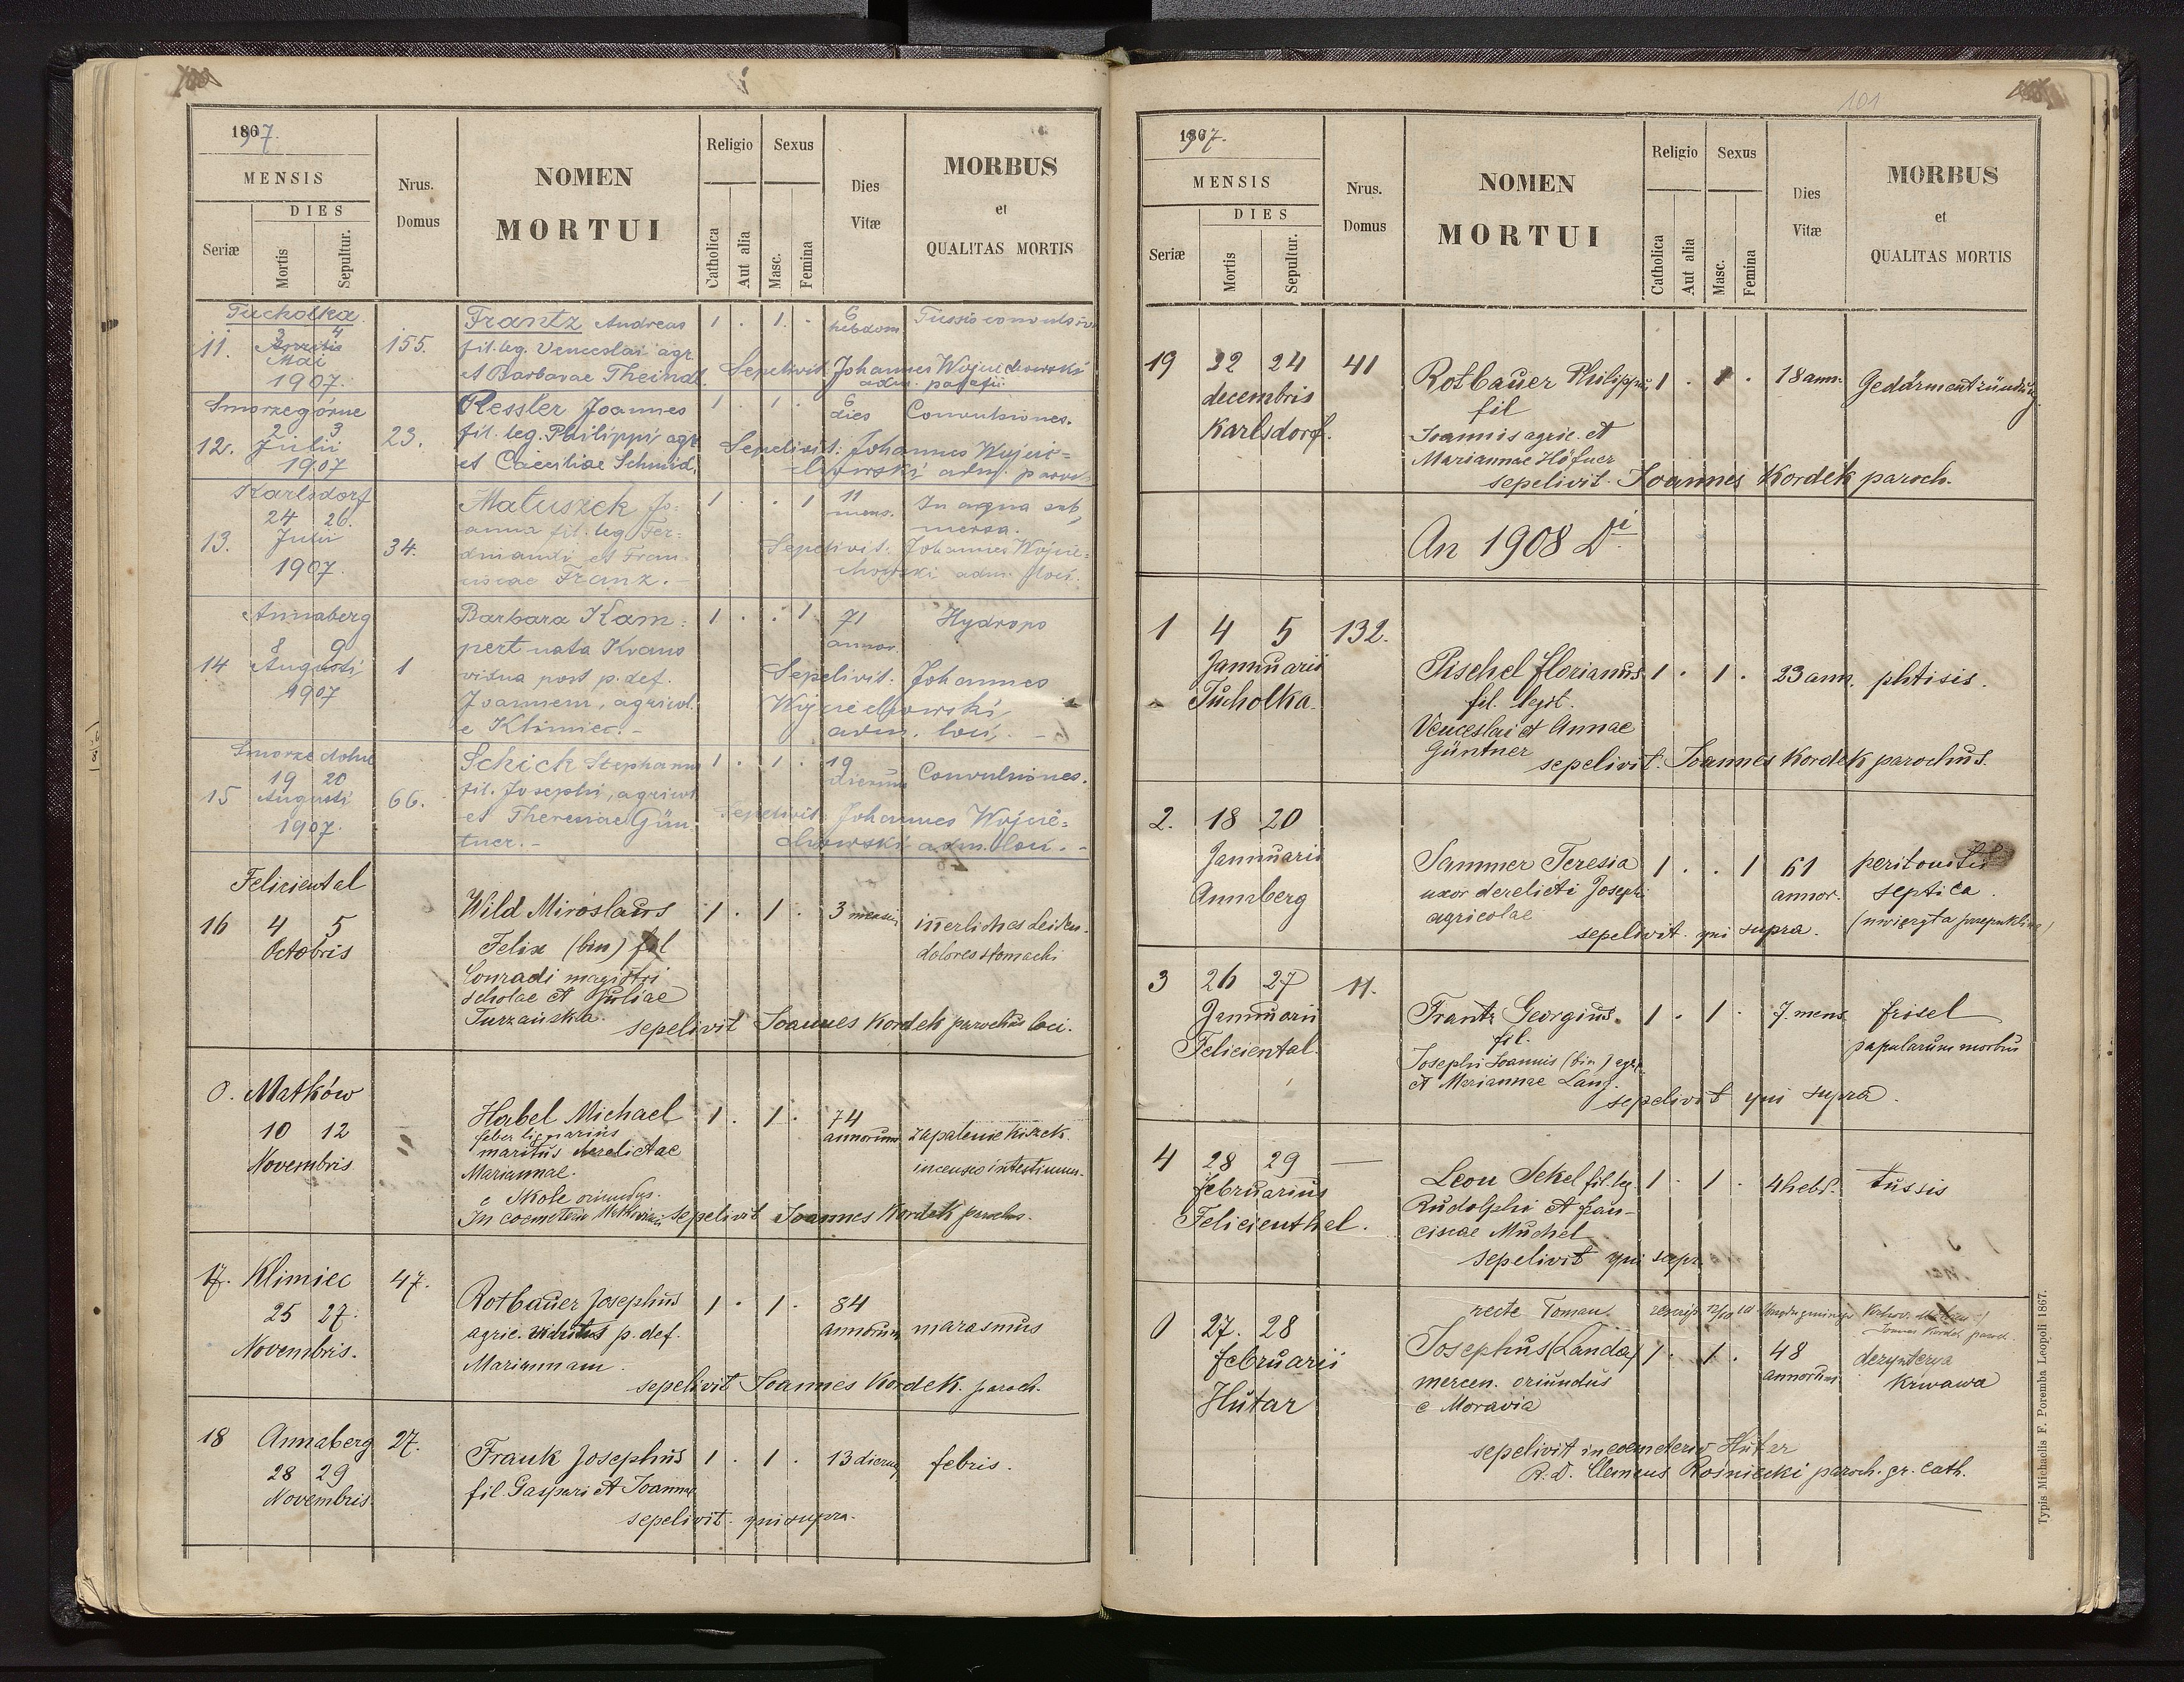 1907.
MENSIS
DIES
Seriæ
Mortis
Sepultur.
Nrus.
Domus
NOMEN
MORTUI
Religio
Sexus
Catholica
Aut alia
Masc.
Femina
Dies
Vitæ
MORBUS
et
QUALITAS MORTIS
Tucholka
11. 3 4 155. Frantz Andreas 1 . 1. . 6 hebdom Tussis convulsiva
Mai fil. leg. Venceslai agr.
1907. et Barbarae Theindl. Sepelivit: Johannes Wojciechowski
adm.
Smorzegórne Kessler Joannes 1 . 1 . 6 dies Convulsiones.
12. 2 3 Julii 23. fil. leg. Philippi agr. Sepelivit: Johannes Wojcie=
1907 et Caeciliae Schmid. chowski adm.
Karlsdorf Matuszek Jo= 1 . . 1 11 mens. In aqua sub
24 26. anna fil. leg. Fer= mersa.
13. Julii 34. dinandi et Fran= Sepelivit: Johannes Wojcie=
1907. ciscae Franz. - chowski adm. loci.
Annaberg Barbara Kam= 1 . . 1 71 Hydrops
8 9 pert nata Kraus annor.
14 Augusti 1 vidua post p. def. Sepelivit: Johannes
1907 Joannem, agricol. Wojciechowski
e Klimiec. - adm. loci. -
Smorze dolne Schick Stephanus 1 . 1 . 19 dierum Convulsiones.
19 20
15 Augusti 66. fil. Josephi, agricol.
1907. et Theresiae Gün= Sepelivit: Johannes Wojcie=
tner. - chowski adm. loci. -
Feliciental
16 4 5 Wild Miroslaus 1 . 1 . 3 mensis innerliches Leiden.
Octobris Felix (bin) fil dolores stomachi
Conradi magistri
scholae et Juliae
Turzańska. sepelivit Joannes Kordek parochus loci.
0. Matków
10 12 Habel Michael 1 . 1 . 74 annorum zapalenie kiszek
Novembris faber lignarius
maritus derelictae
Mariannae. incensio intestinum.
e Skole oriundus.
In coemeterio sepelivit Joannes Kordek parochus.
17. Klimiec 47. Rotbauer Josephus 1 . 1 . 84 annorum marasmus
25 27. agric. viduus p. def.
Novembris. Mariannam.
sepelivit Joannes Kordek. paroch.
18 Annaberg 27. Frank Josephus 1 . 1 . 13 dierum febris.
28 29 fil. Gaspari et Joannae
Novembris sepelivit. qui supra.
101
1907.
MENSIS
DIES
Seriæ
Mortis
Sepultur.
Nrus.
Domus
NOMEN
MORTUI
Religio
Sexus
Catholica
Aut alia
Masc.
Femina
Dies
Vitæ
MORBUS
et
QUALITAS MORTIS
19 22 24 41 Rotbauer Philippus 1 . 1 . 18 ann. Gedärmentzündung.
decembris fil
Karlsdorf. Joannis agric. et
Mariannae Höfner
sepelivit. Joannes Kordek paroch.
An 1908 Di
1 4 5 132. Pischel Florianus 1 . 1 . 23 ann. phtisis.
Jannuarii fil. legit.
Tucholka. Venceslai et Annae
Güntner sepelivit. Joannes Kordek parochus.
2. 18 20 Sammer Teresia 1 . . 1 61 annor. peritonitis
Jannuarii uxor derelicti Josephi septica.
Annaberg agricolae (uwięzgła przepuklina)
sepelivit. qui supra.
3 26 27 11. Frantz Georgius. 1 . 1 . 7. mens frisel
Jannuarii fil. papularum morbus
Feliciental. Josephi Joannis (bin) agr.
et Mariannae Lang.
sepelivit qui supra.
4 28 29 — Leon Sekel fil. leg. 1 . 1 . 4 hebd. tussis
februarius Rudolphi et Fran-
Felicienthel. ciscae Muchel
sepelivit qui supr.
recte Toman.
0 27. 28 Josephus (Landa) 1 . 1 . 48 annorum dezynterya
februarii mercen. oriundus krwawa
Hutar e Moravia
sepelivit in coemeterio Hutar
R. D. Clemens Rośniecki paroch. gr. cath.
Typis Michaelis F. Poremba Leopoli 1867.